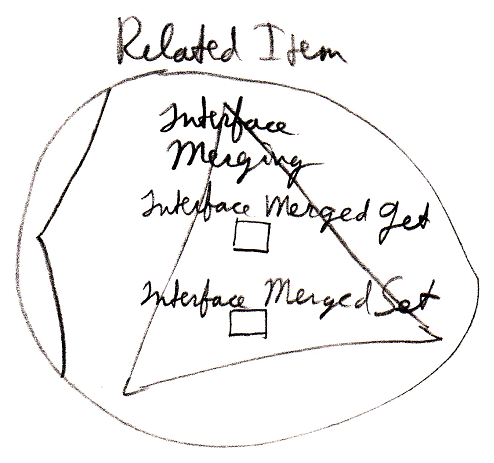 Related Item
Interface
Merging
Interface Merged Get
Interface Merged Set